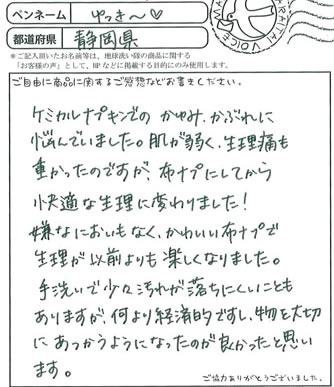 ペンネーム ゆっき〜♡
都道府県 静岡県
＊ご記入頂いたお名前等は、地球洗い隊の商品に関する
「お客様の声」として、HPなどに掲載する目的にのみ使用します。
ご自由に商品に関するご感想などお書きください。
ケミカルナプキンでの かゆみ、かぶれに
悩んでいました。肌が弱く、生理痛も
重かったのですが、布ナプにしてから
快適な生理に変わりました!
嫌なにおいもなく、かわいい布ナプで
生理が以前よりも楽しくなりました。
手洗いで少々汚れが落ちにくいことも
ありますが、何より経済的ですし、物を大切
にあつかうようになったのが良かったと思い
ます。
ご協力ありがとうございました。